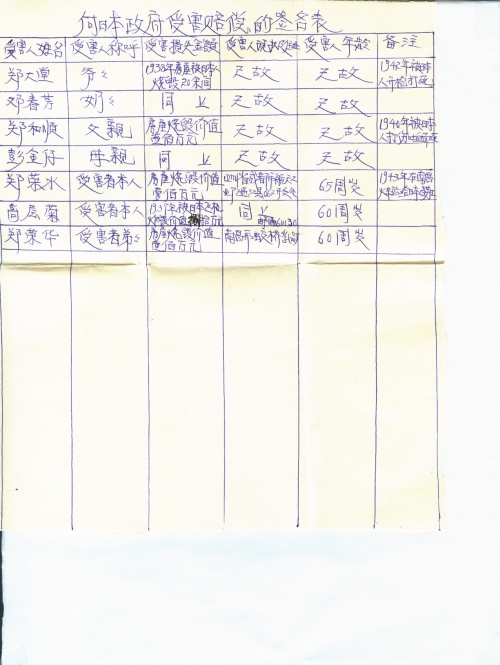 向日本政府受害赔偿的签名表
受害人姓名 受害人称呼 受害损失金额 受害人现状及地址 受害人年龄 备注
郑大堂 爷々 1938年房屋被日本人 已故 已故 1942年被日本
烧毁20余间
邓春芳 奶々 同上 已故 已故
郑和顺 父親 房屋烧毁价值 已故 已故 1940年被日本
壹佰万元
彭金仔 母親 同上 已故 已故
郑荣水 受害者本人 房屋烧毁价值 65周岁 1943年在南昌
壹佰万元
高层菊 受害者本人 1937年被日本飞机 同上 60周岁
郑荣华 受害者弟々 房屋烧毁价值 60周岁
壹佰万元